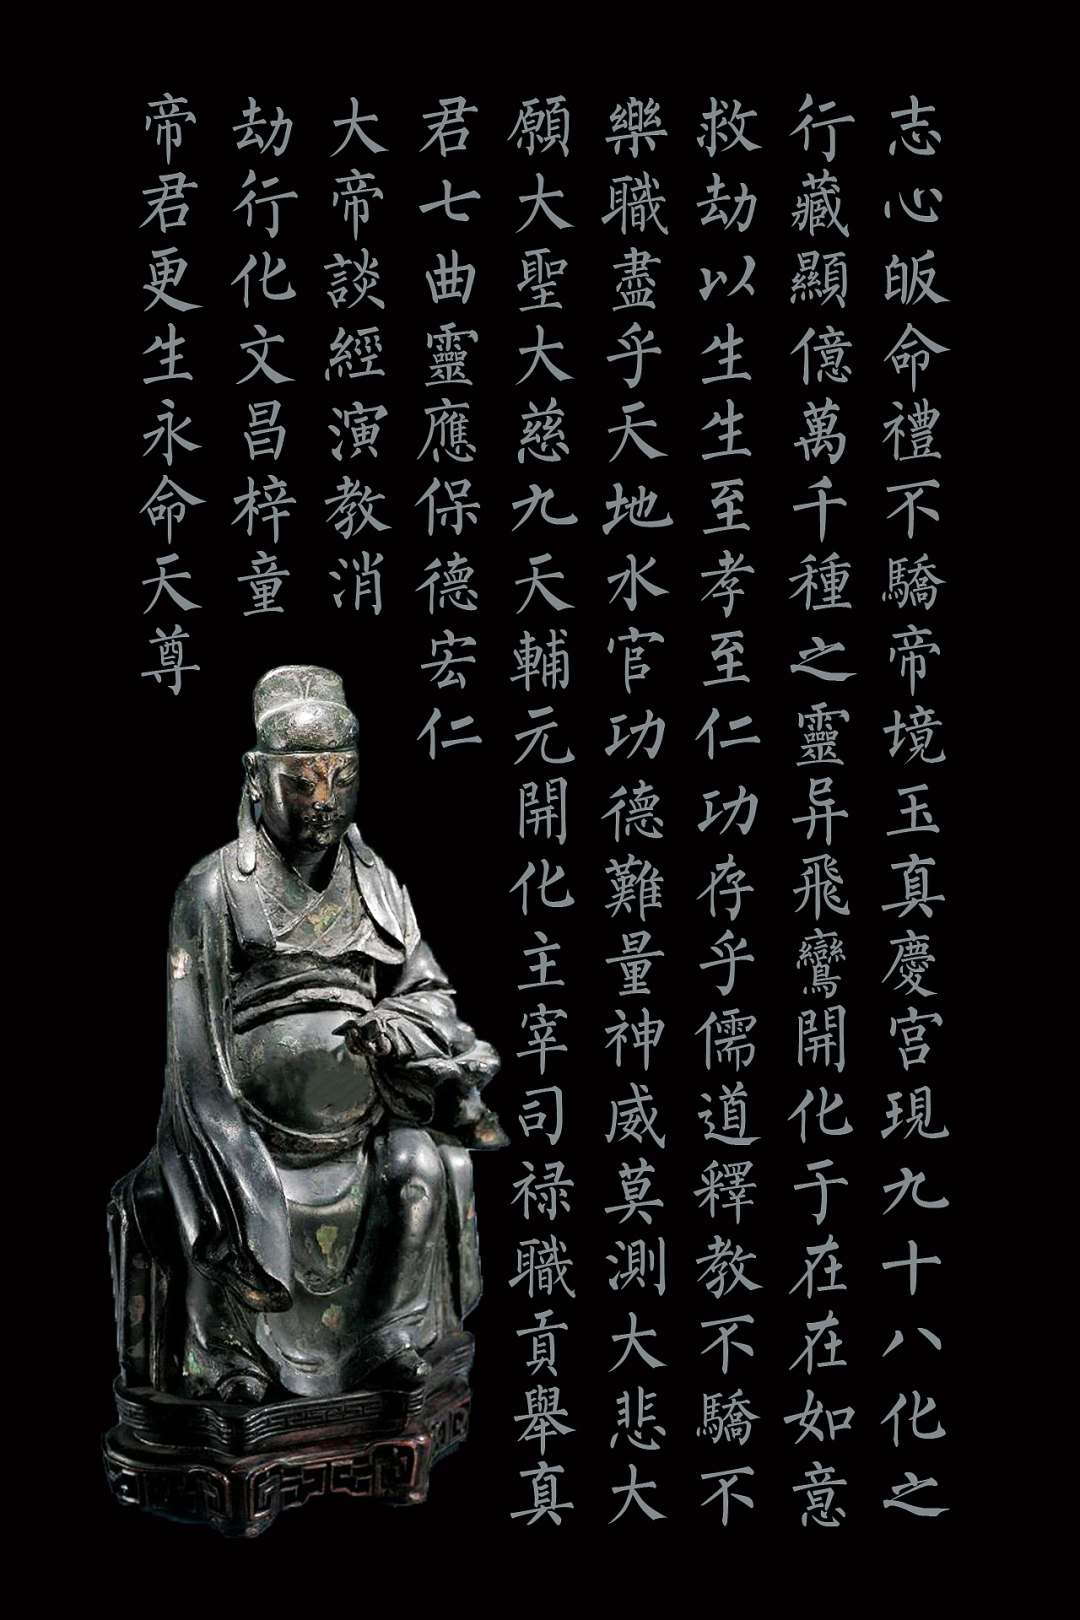 志心皈命禮不驕帝境玉真慶宮現九十八化之
行藏顯億萬千種之靈异飛鸞開化于在在如意
救劫以生生至孝至仁功存乎儒道釋教不驕不
樂職盡乎天地水官功德難量神威莫測大悲大
願大聖大慈九天輔元開化主宰司禄職貢舉真
君七曲靈應保德宏仁
大帝談經演教消
劫行化文昌梓童
帝君更生永命天尊